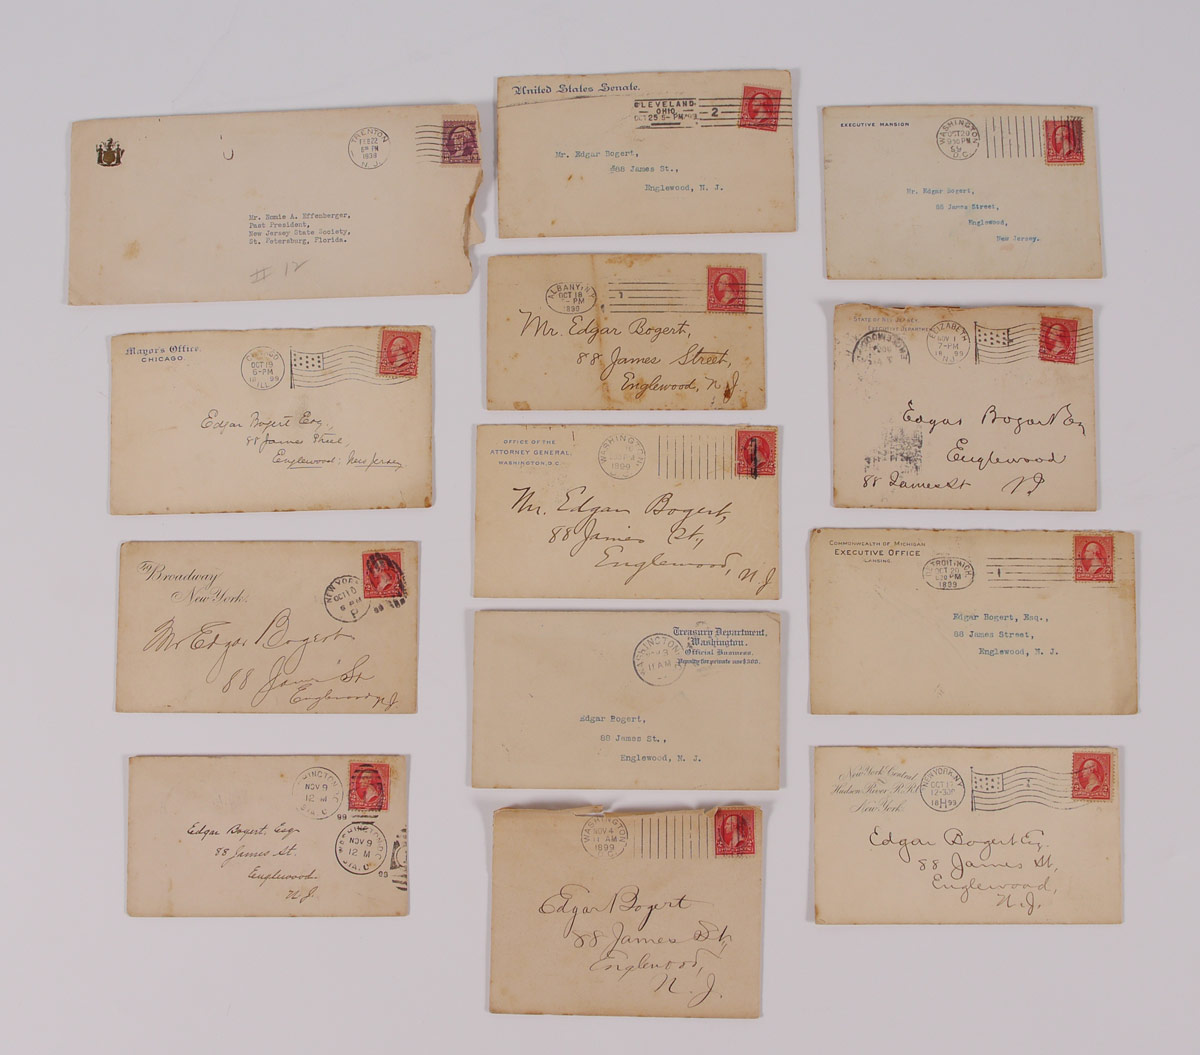 TRENTON
FEB 22
1939
N.J.
Mr. Sumie A. Effenberger,
Past President,
New Jersey State Society,
St. Petersburg, Florida.
# 12
Mayor's Office.
CHICAGO.
OCT 19
5-PM
ILL.
Edgar Bogert Esq.,
88 James Street,
Englewood, New Jersey
Broadway
New York.
NEW YORK
OCT 10
Mr Edgar Bogert
88 James St
Englewood N.J.
NOV 9
12 M
99
WASHINGTON, D.C.
NOV 9
12 M
99
Edgar Bogert, Esq
88 James St.
Englewood
N.J.
United States Senate.
CLEVELAND
OHIO
OCT 25 5-PM '99
2
Mr. Edgar Bogert,
88 James St.,
Englewood, N. J.
ALBANY, N.Y.
OCT 18
PM
1899
1
Mr. Edgar Bogert,
88 James Street,
Englewood, N.J.
OFFICE OF THE
ATTORNEY GENERAL,
WASHINGTON, D.C.
WASHINGTON
1899
Mr. Edgar Bogert,
88 James St.,
Englewood, N.J.
Treasury Department,
Washington.
Official Business.
Penalty for private use $300.
WASHINGTON
NOV 9
11 AM
Edgar Bogert,
88 James St.,
Englewood, N. J.
WASHINGTON
NOV 4
AM
1899
Edgar Bogert
88 James St,
Englewood,
N. J.
EXECUTIVE MANSION
WASHINGTON
OCT 20
D.C.
Mr. Edgar Bogert,
88 James Street,
Englewood,
New Jersey.
STATE OF NEW JERSEY
EXECUTIVE DEPARTMENT
ELIZABETH
NOV 1
7-PM
18 99
N.J.
Edgar Bogert Esq
Englewood
88 James St N.J.
COMMONWEALTH OF MICHIGAN
EXECUTIVE OFFICE
LANSING.
DETROIT, MICH.
OCT 20
PM
1899
1
Edgar Bogert, Esq.,
88 James Street,
Englewood, N. J.
New York Central
Hudson River R.R.
New York.
NEW YORK, N.Y.
18 99
Edgar Bogert Esq.
88 James St,
Englewood,
N.J.